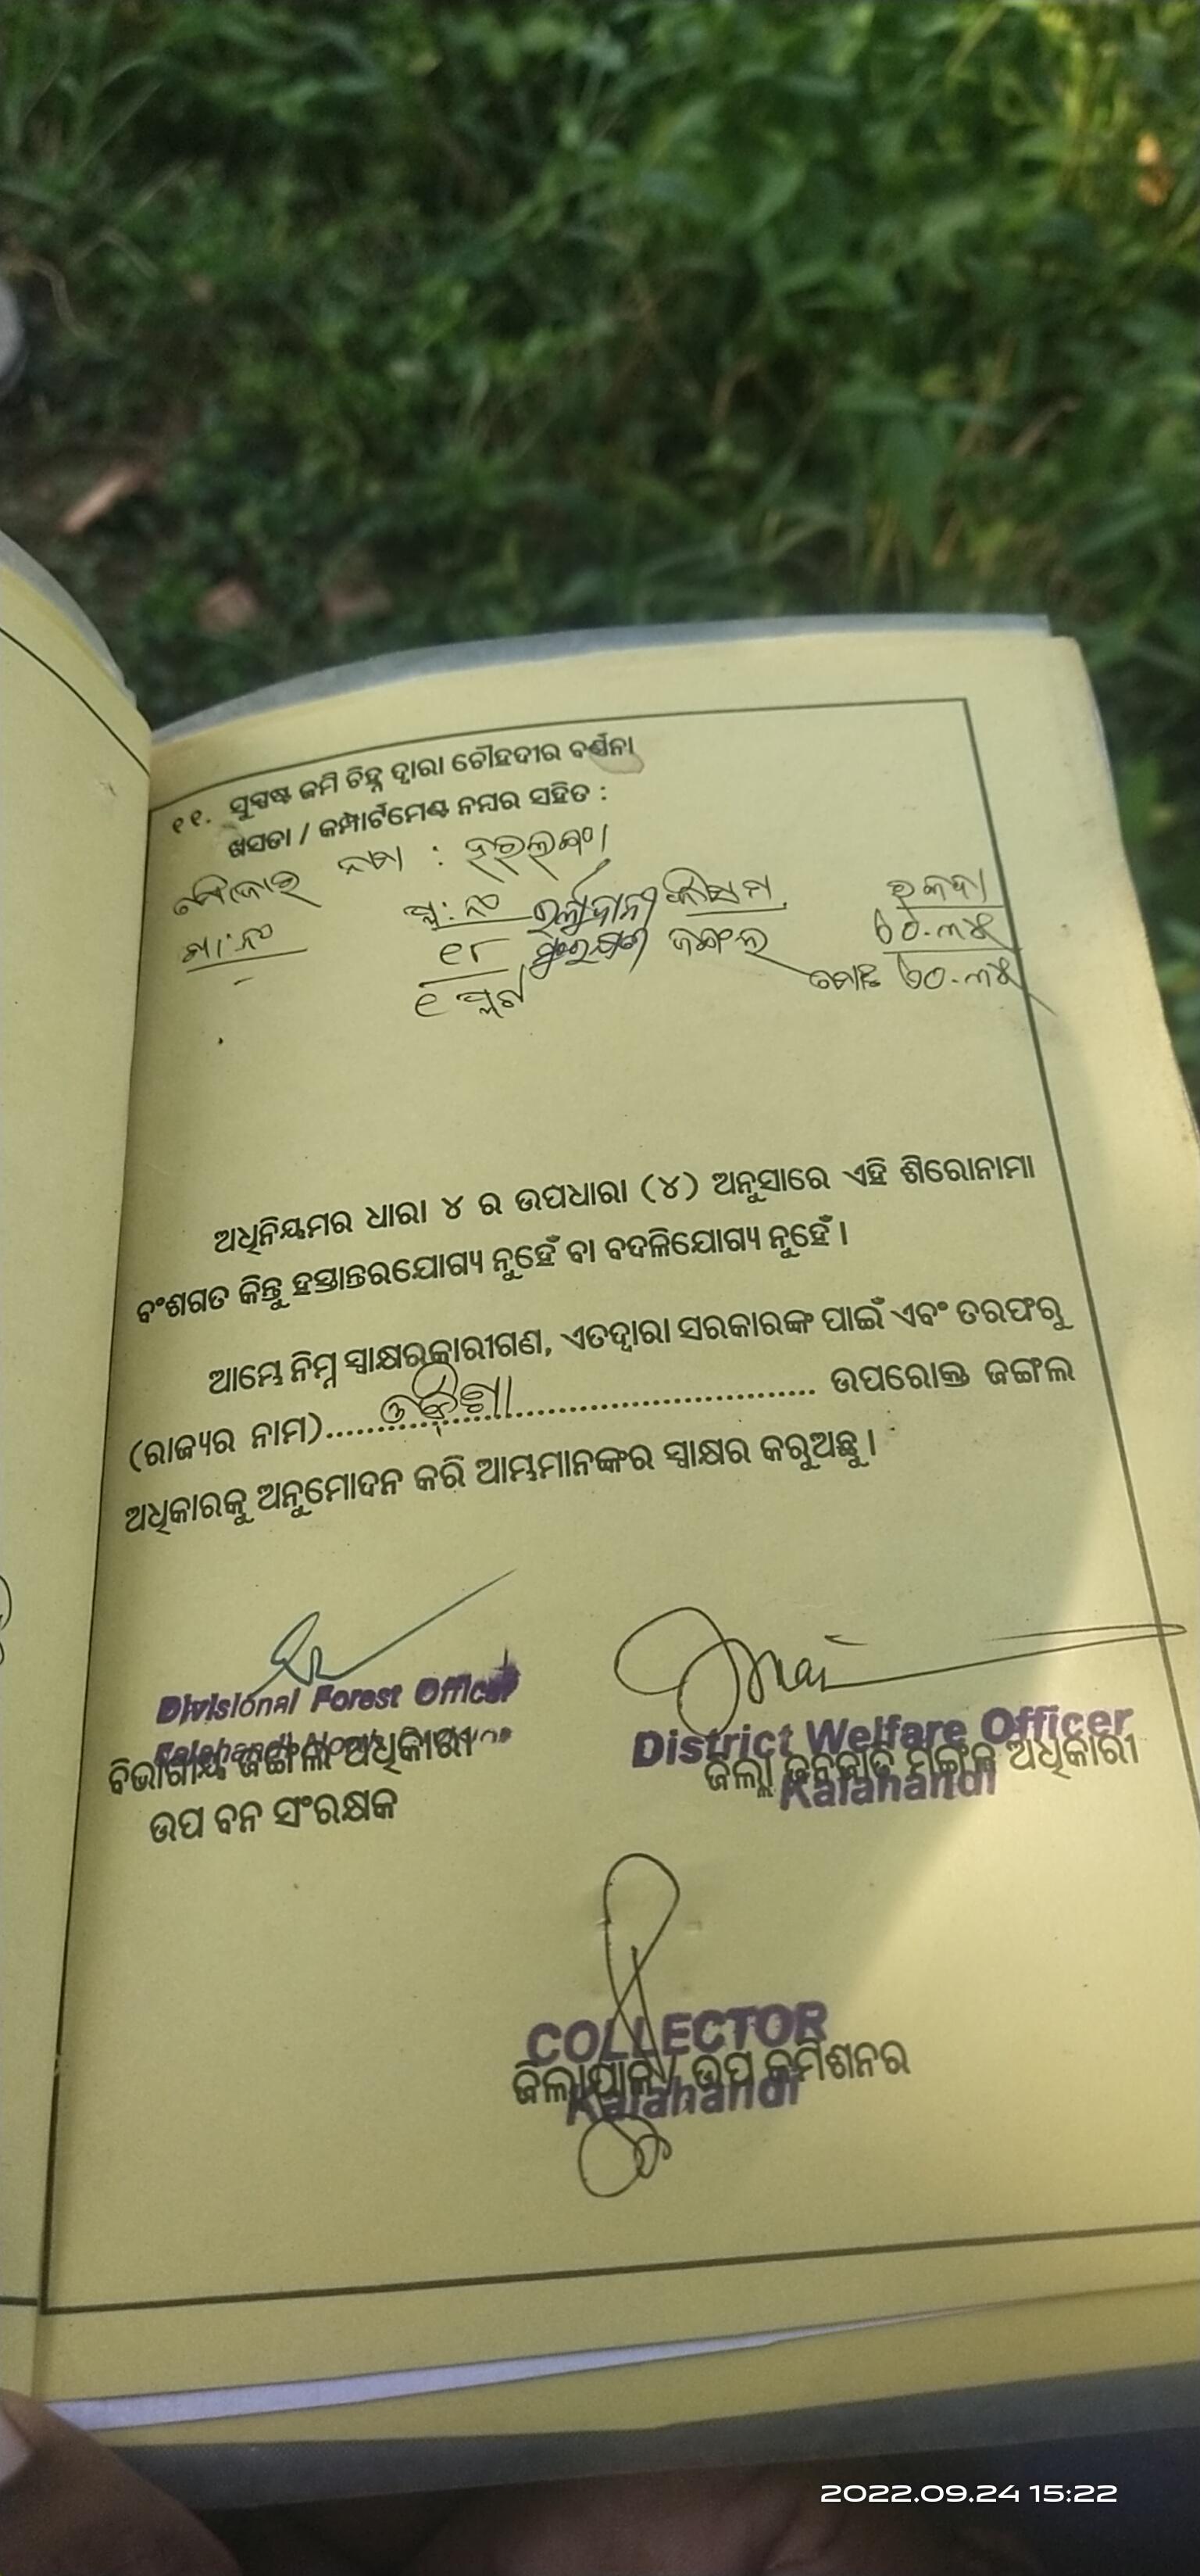 ୧୧. ସୁସ୍ପଷ୍ଟ ଜମି ଚିହ୍ନ ଦ୍ୱାରା ଚୌହଦୀର ବର୍ଣ୍ଣନା
ଖସଡା / କମ୍ପାର୍ଟମେଣ୍ଟ ନମ୍ବର ସହିତ :
ମୌଜାର ନାମ :
ଖା: ନଂ ପ୍ଲ: ନଂ କିସମ ରକବା
୧୮ ଜଙ୍ଗଲ ୬୦.୩୫
୧ ପ୍ଲଟ ମୋଟ ୬୦.୩୫
ଅଧିନିୟମର ଧାରା ୪ ର ଉପଧାରା (୪) ଅନୁସାରେ ଏହି ଶିରୋନାମା
ବଂଶଗତ କିନ୍ତୁ ହସ୍ତାନ୍ତରଯୋଗ୍ୟ ନୁହେଁ ବା ବଦଳିଯୋଗ୍ୟ ନୁହେଁ ।
ଆମ୍ଭେ ନିମ୍ନ ସ୍ୱାକ୍ଷରକାରୀଗଣ, ଏତଦ୍ୱାରା ସରକାରଙ୍କ ପାଇଁ ଏବଂ ତରଫରୁ
(ରାଜ୍ୟର ନାମ)..... ଓଡ଼ିଶା ..................... ଉପରୋକ୍ତ ଜଙ୍ଗଲ
ଅଧିକାରକୁ ଅନୁମୋଦନ କରି ଆମ୍ଭମାନଙ୍କର ସ୍ୱାକ୍ଷର କରୁଅଛୁ ।
Divisional Forest Officer
ବିଭାଗୀୟ ଜଙ୍ଗଲ ଅଧିକାରୀ
ଉପ ବନ ସଂରକ୍ଷକ
District Welfare Officer
ଜିଲ୍ଲା ଜନଜାତି ମଙ୍ଗଳ ଅଧିକାରୀ
Kalahandi
COLLECTOR
ଜିଲାପାଳ / ଉପ କମିଶନର
Kalahandi
2022.09.24 15:22